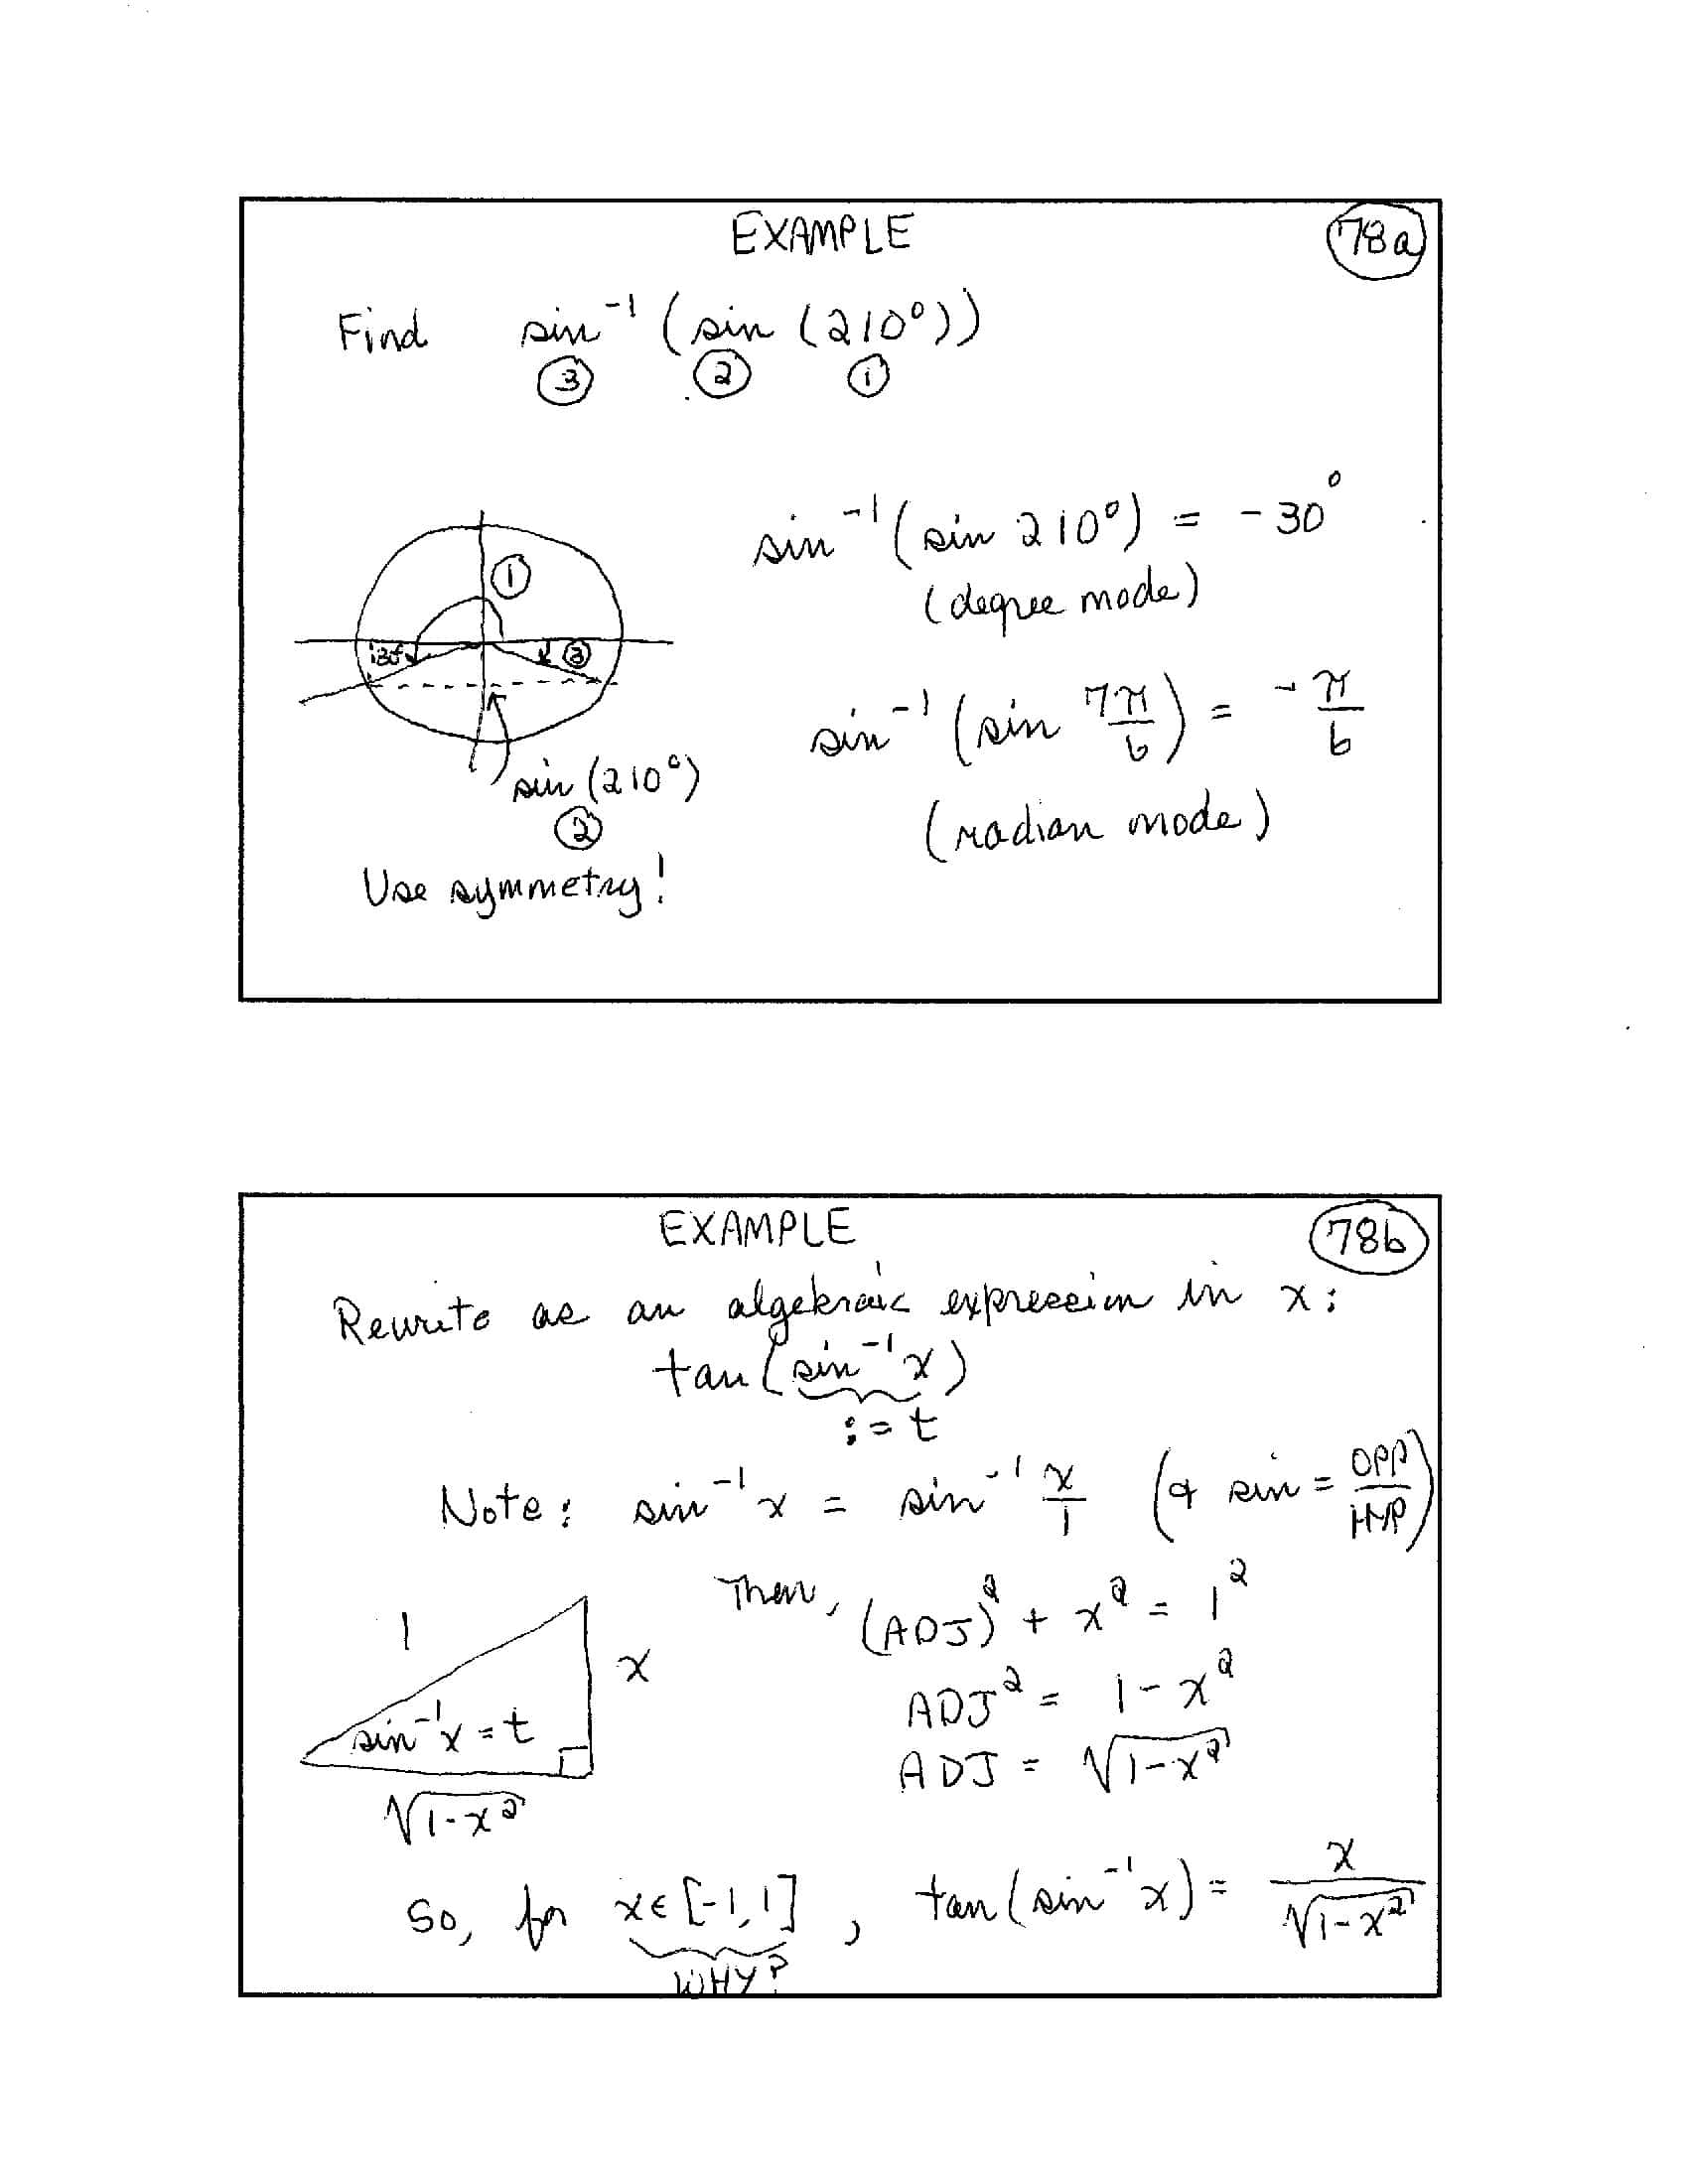 EXAMPLE
78a
Find sin⁻¹ (sin (210°))
③ ② ①
①
30° ③
sin (210°)
②
Use symmetry!
sin⁻¹ (sin 210°) = -30°
(degree mode)
sin⁻¹ (sin 7π/6) = -π/6
(radian mode)
EXAMPLE
78b
Rewrite as an algebraic expression in x:
tan (sin⁻¹ x)
:= t
Note: sin⁻¹ x = sin⁻¹ x/1 (& sin = OPP/HYP)
Then, (ADJ)² + x² = 1²
ADJ² = 1 - x²
ADJ = √(1-x²)
1
x
sin⁻¹ x = t
√(1-x²)
So, for x ∈ [-1, 1], tan (sin⁻¹ x) = x/√(1-x²)
WHY?